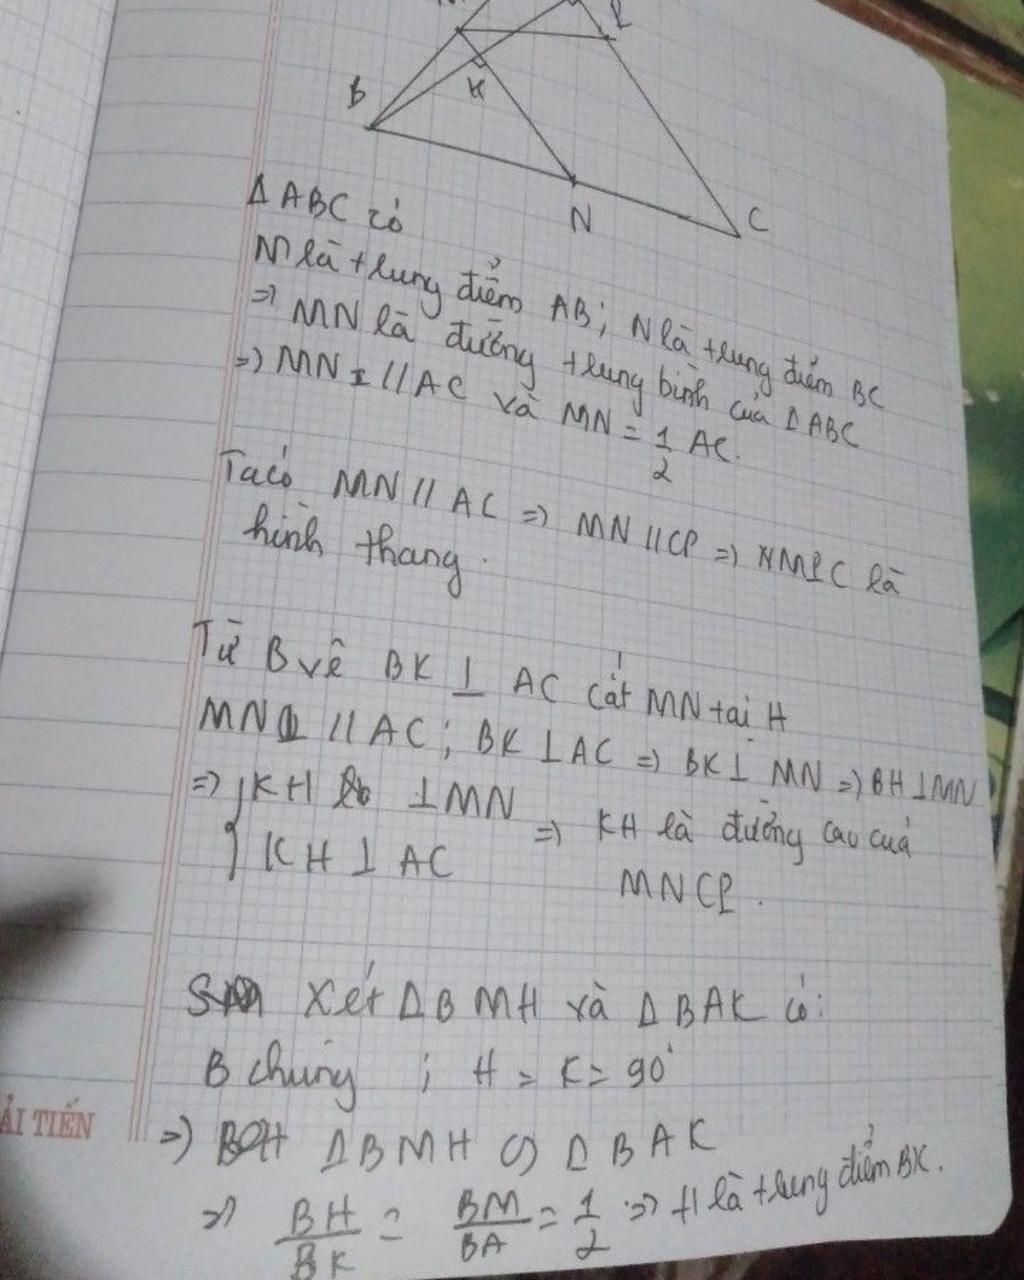 P
B
K
N
C
Δ ABC có
M là trung điểm AB; N là trung điểm BC
=> MN là đường trung bình của Δ ABC
=> MN // AC và MN = 1/2 AC.
Ta có MN // AC => MN // CP => NMPC là
hình thang.
Từ B vẽ BK ⊥ AC cắt MN tại H
MN // AC; BK ⊥ AC => BK ⊥ MN => BH ⊥ MN
=> { KH ⊥ MN
{ KH ⊥ AC => KH là đường cao của
MNCP.
Xét Δ BMH và Δ BAK có:
B chung ; H = K = 90°
=> Δ BMH ∽ Δ BAK
=> BH/BK = BM/BA = 1/2 => H là trung điểm BK.
ẢI TIẾN